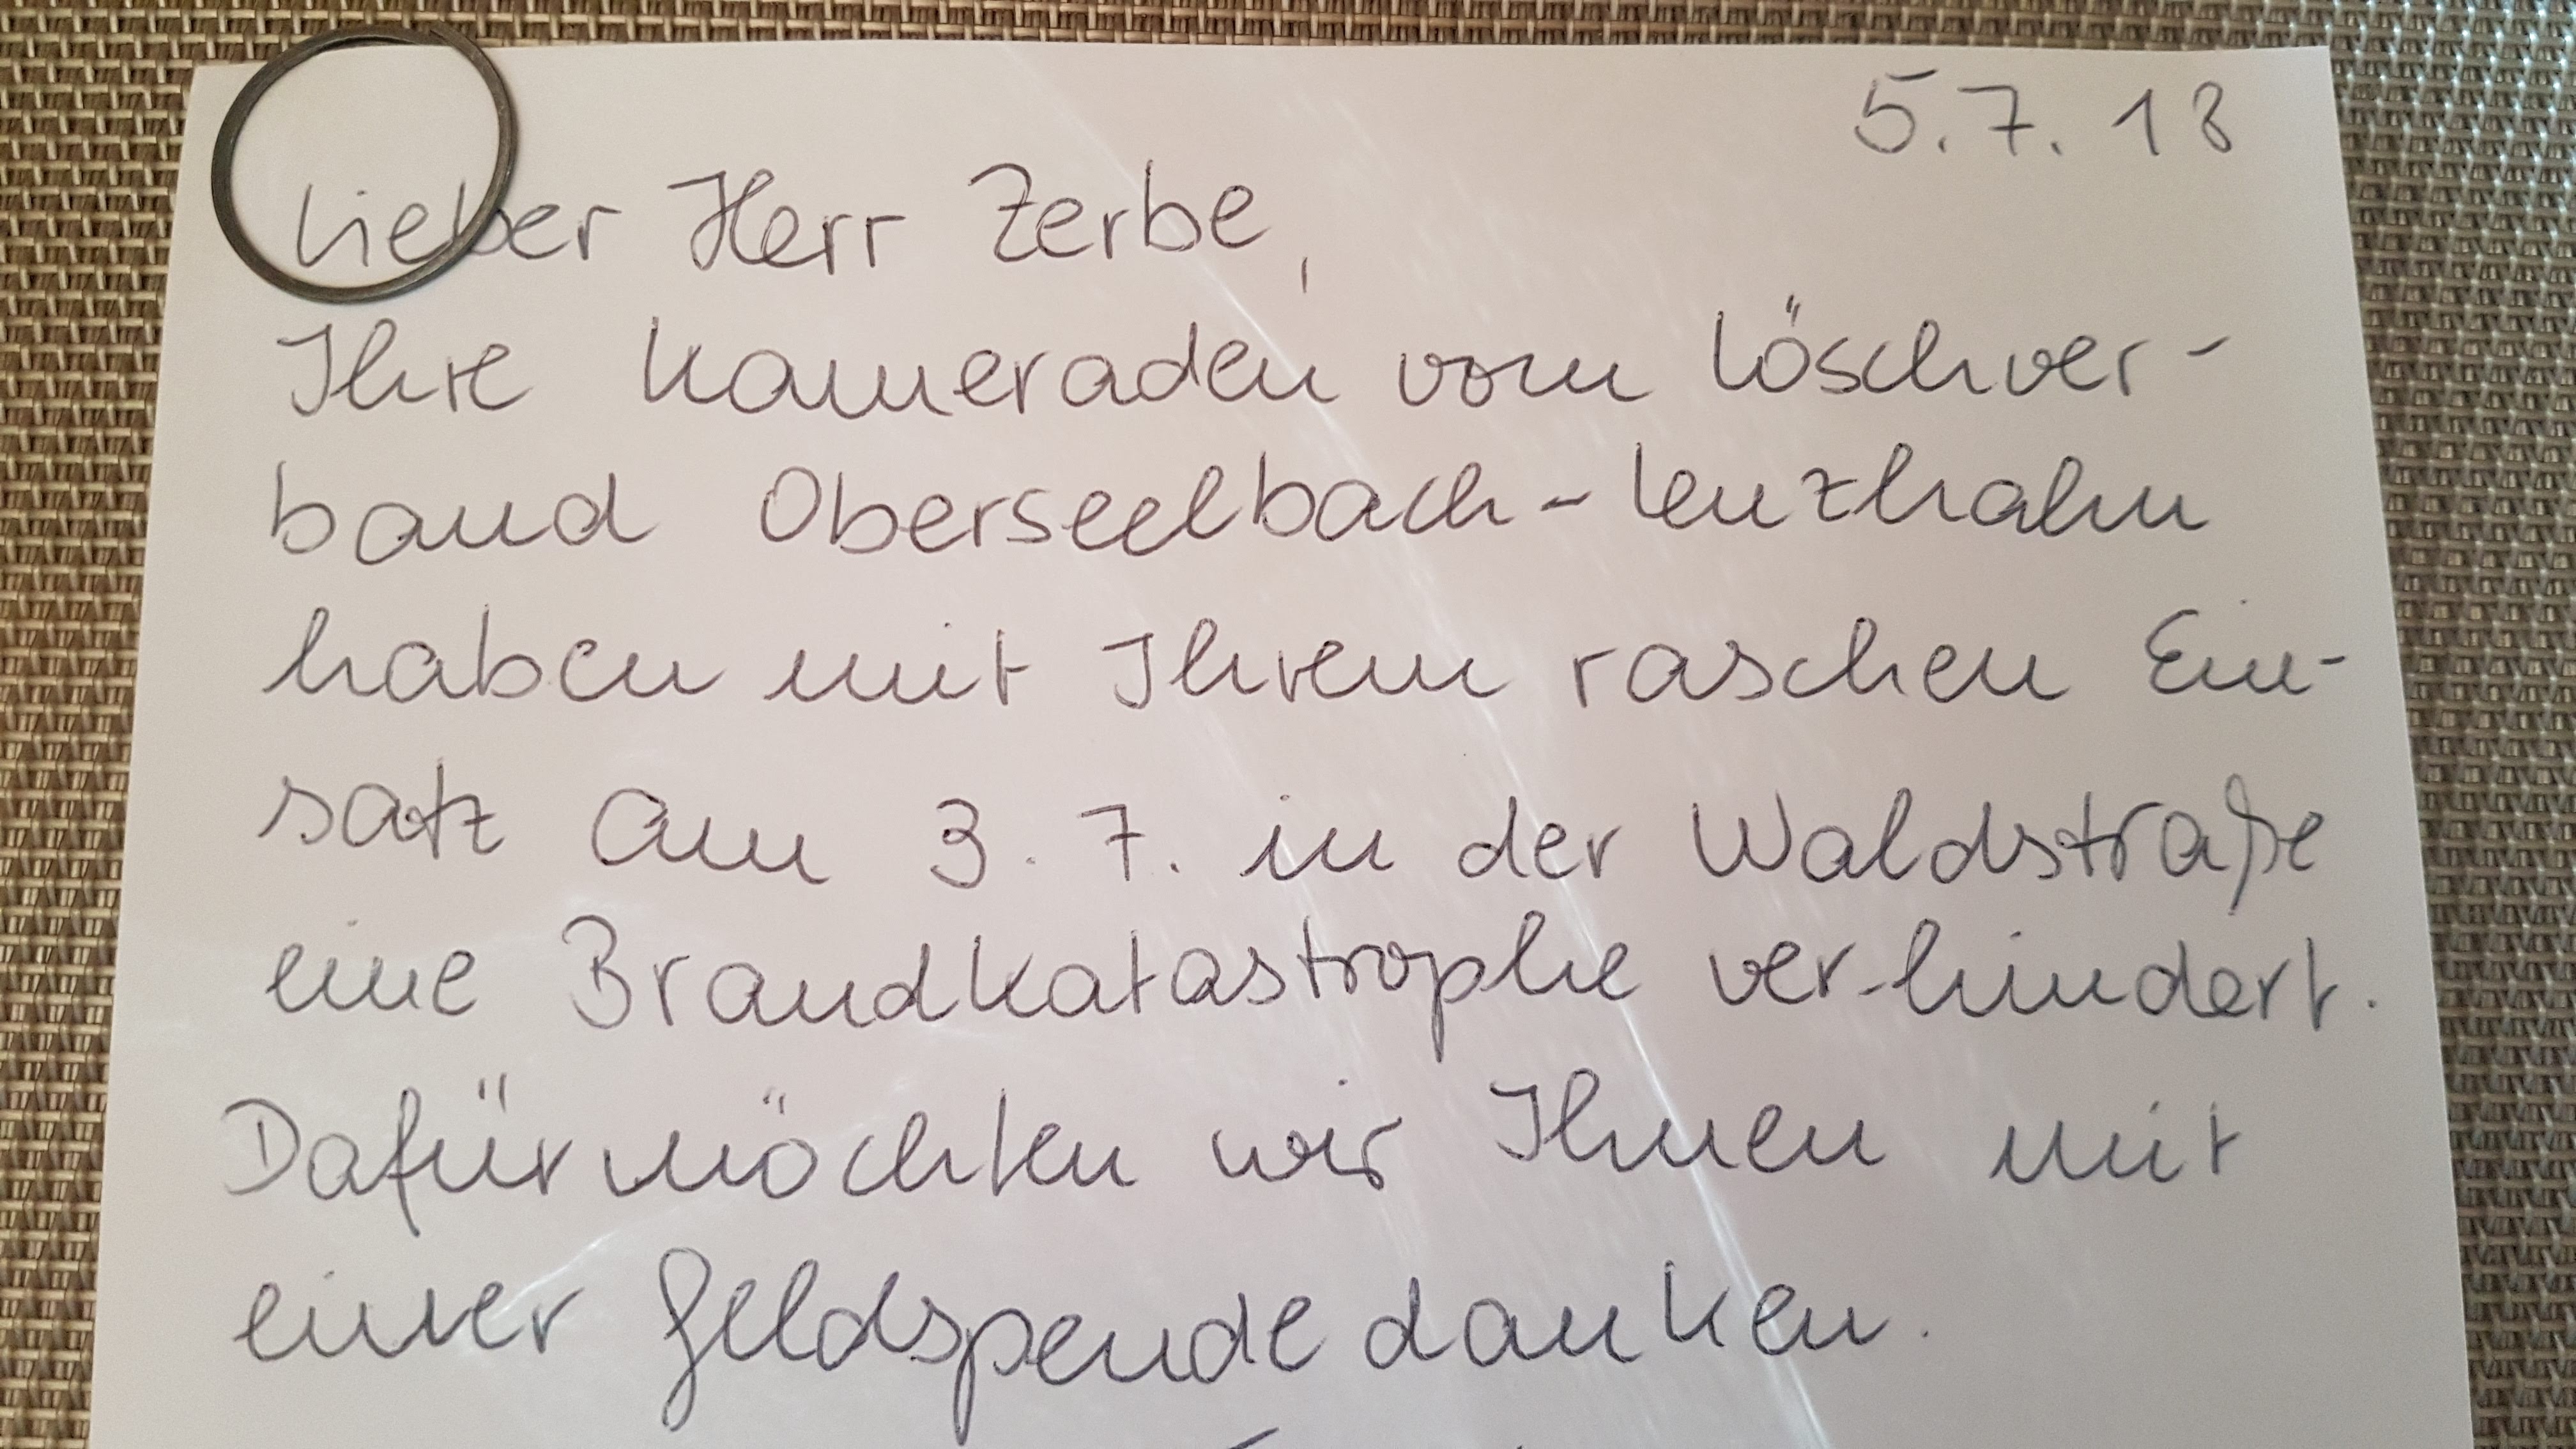 5.7.18
Lieber Herr Zerbe,
Ihre Kameraden vom Löschver-
band Oberseelbach-Lenzhahn
haben mit Ihrem raschen Ein-
satz am 3.7. in der Waldstraße
eine Brandkatastrophe verhindert.
Dafür möchten wir Ihnen mit
einer Geldspende danken.